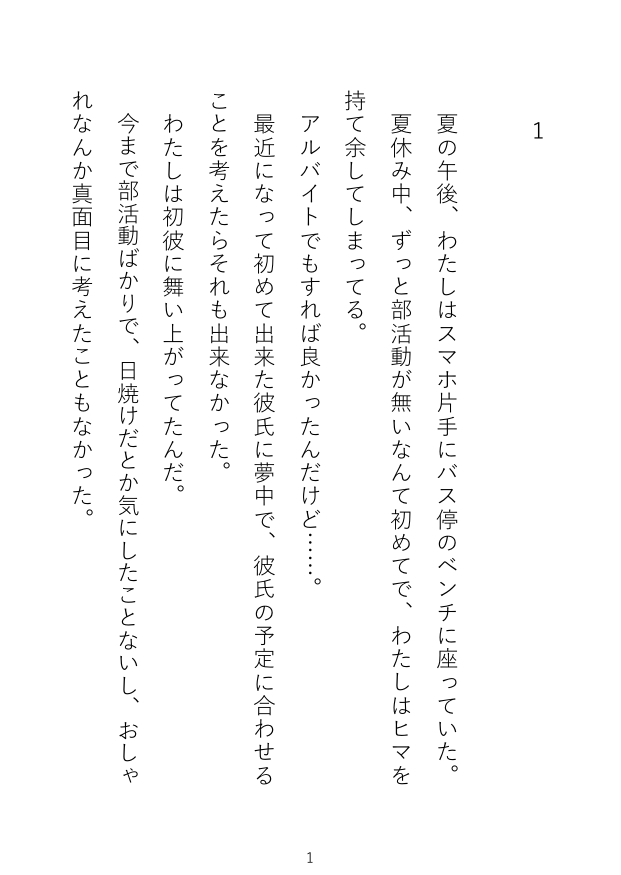 1
夏の午後、わたしはスマホ片手にバス停のベンチに座っていた。
夏休み中、ずっと部活動が無いなんて初めてで、わたしはヒマを
持て余してしまってる。
アルバイトでもすれば良かったんだけど……。
最近になって初めて出来た彼氏に夢中で、彼氏の予定に合わせる
ことを考えたらそれも出来なかった。
わたしは初彼に舞い上がってたんだ。
今まで部活動ばかりで、日焼けだとか気にしたことないし、おしゃ
れなんか真面目に考えたこともなかった。
1